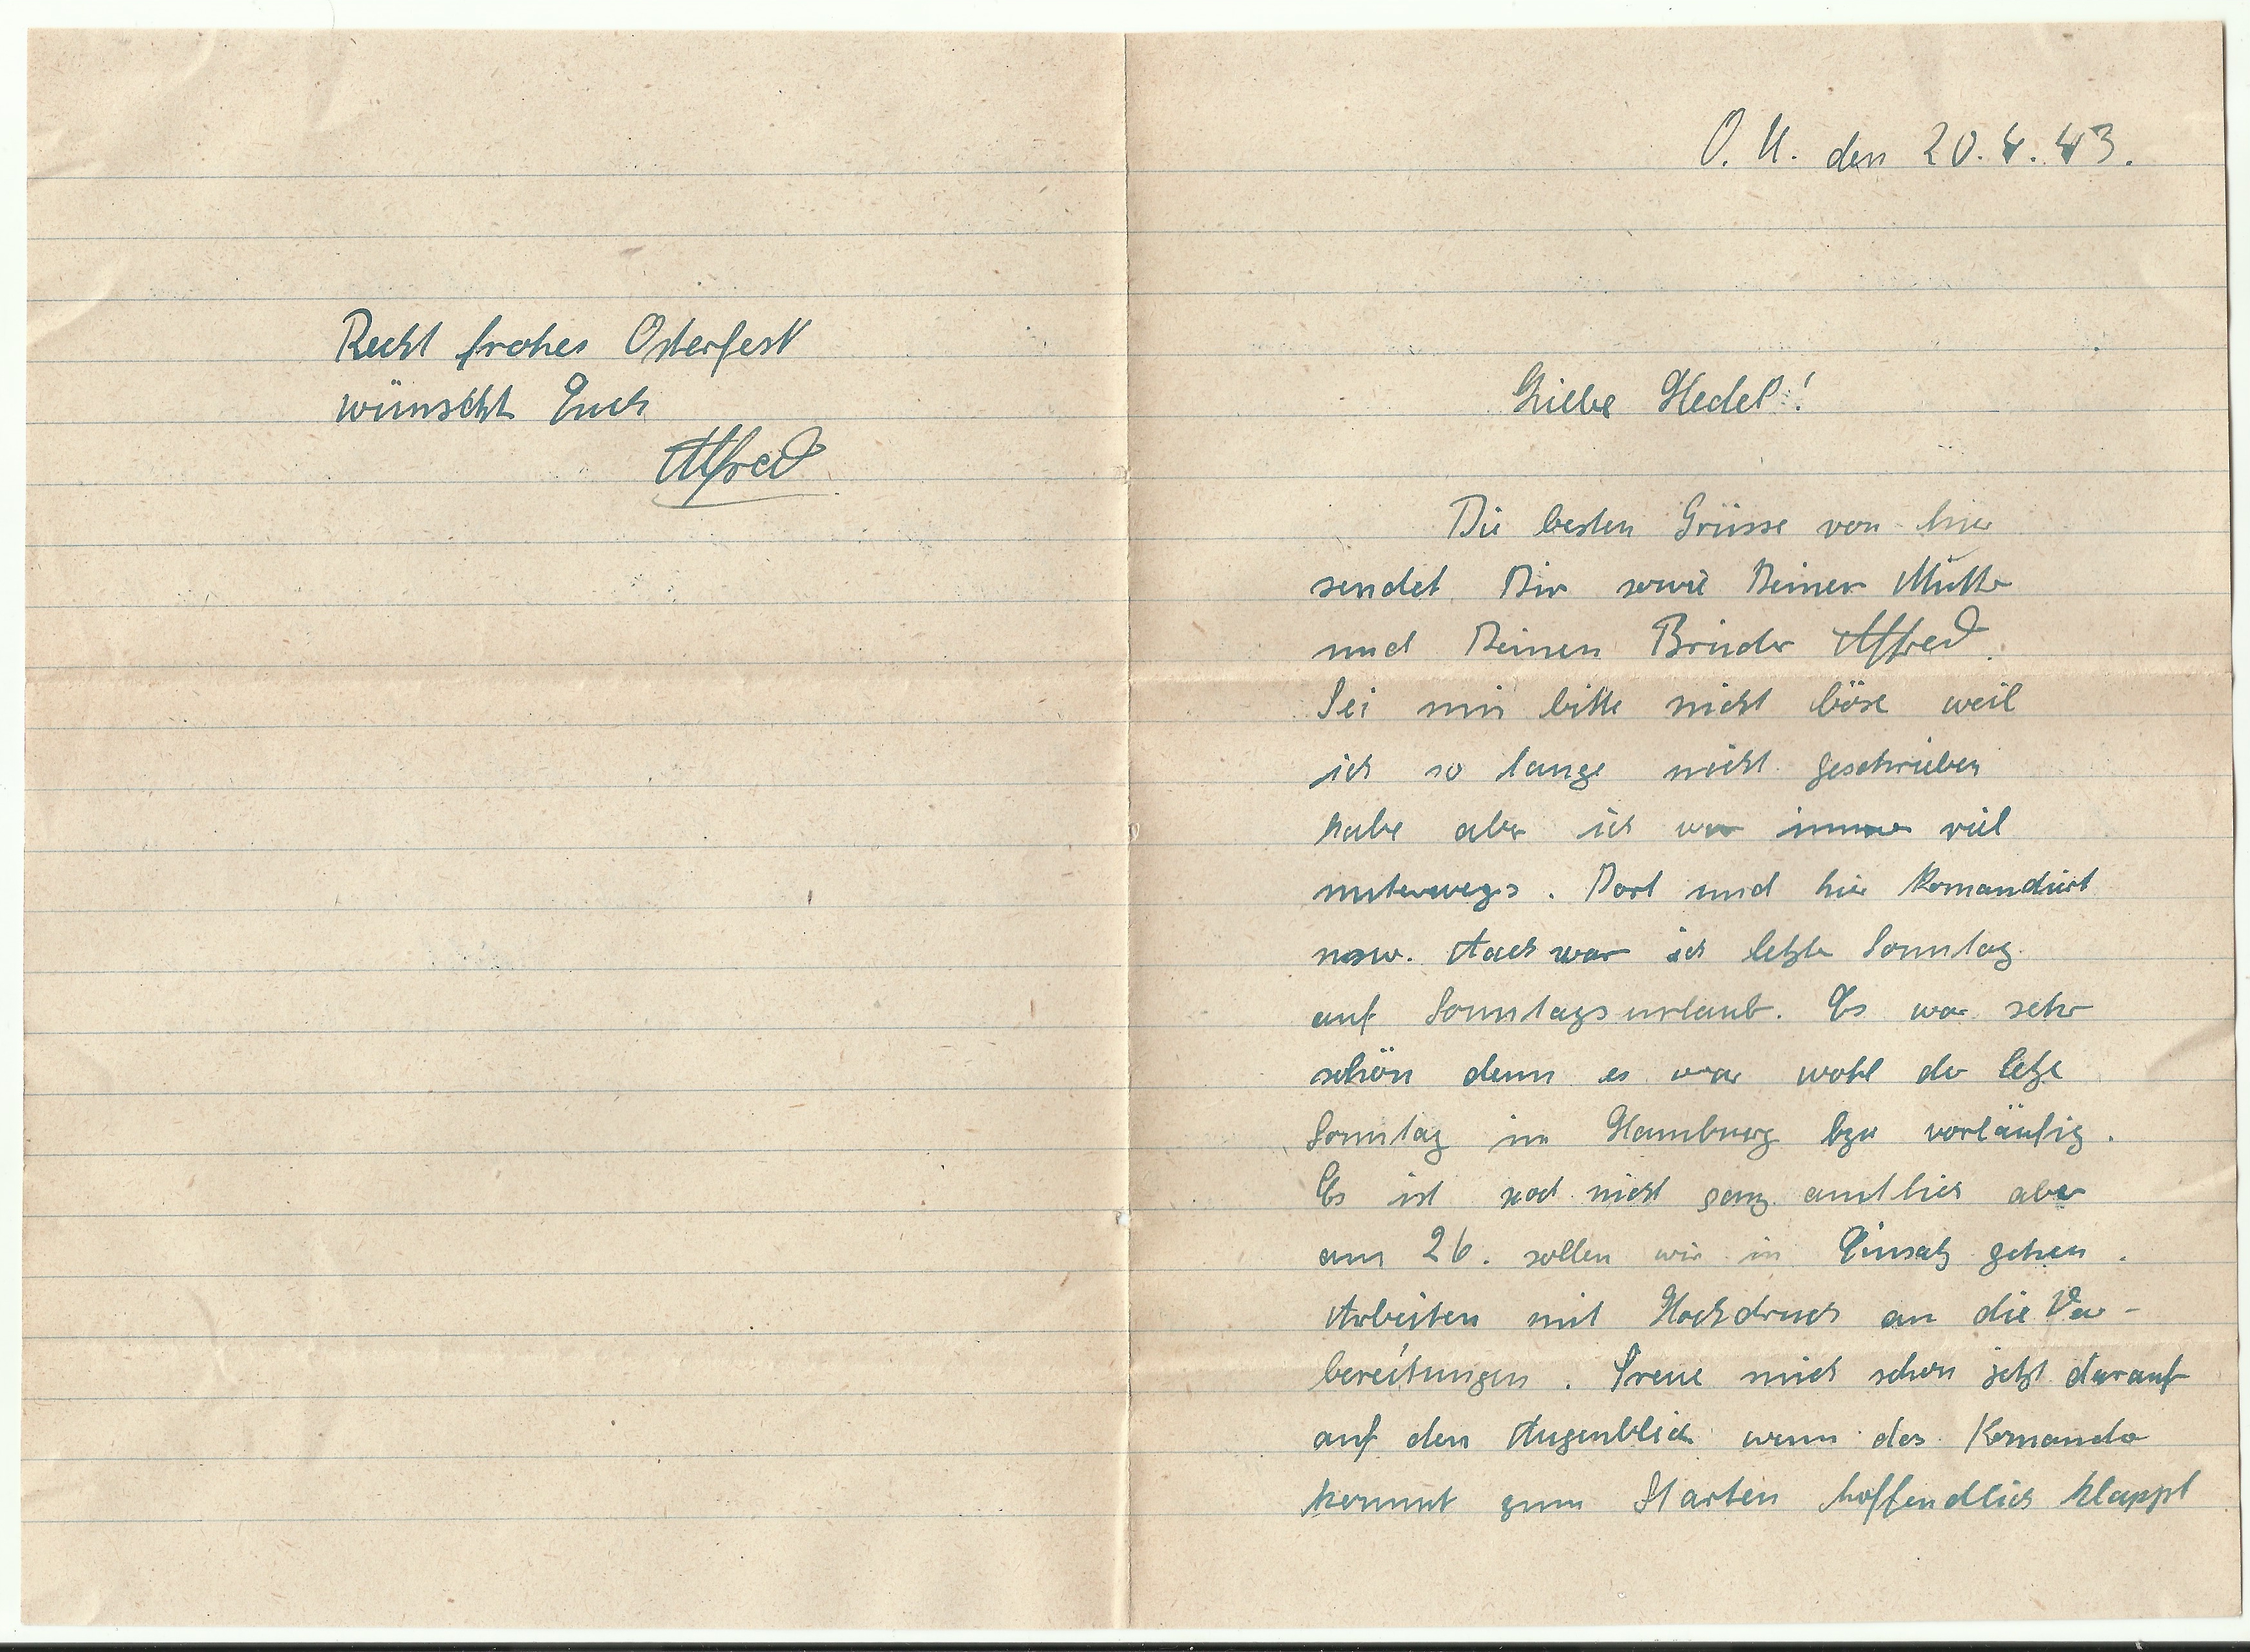 O. U. den 20. 4. 43.
Liebe Hedel!
Die besten Grüsse von hier
sendet Dir sowie Deiner Mutter
und Deinen Bruder Alfred.
Sei mir bitte nicht böse weil
ich so lange nicht geschrieben
habe aber ich war immer viel
unterwegs. Dort und hier komandiert
usw. Auch war ich letzte Sonntag
auf Sonntagsurlaub. Es war sehr
schön denn es war wohl der letze
Sonntag in Hamburg bzw vorläufig.
Es ist noch nicht ganz amtlich aber
am 26. sollen wir in Einsatz gehen.
Arbeiten mit Hochdruck an die Vor-
bereitungen. Freue mich schon jetzt darauf
auf den Augenblick wenn das Komando
kommt zum Starten hoffendlich klappt
Recht frohes Osterfest
wünscht Euch
Alfred